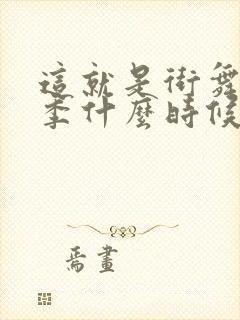 這就是街舞
季什麼時候
焉畫